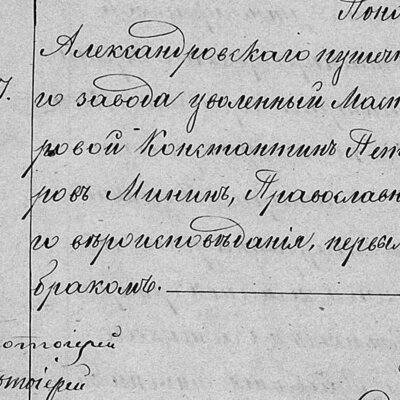 Александровскаго пушеч
го завода уволенный Маст
ровой Константинъ Пет
ровъ Мининъ, Православн
го вѣроисповѣданія, первым
бракомъ.
7.